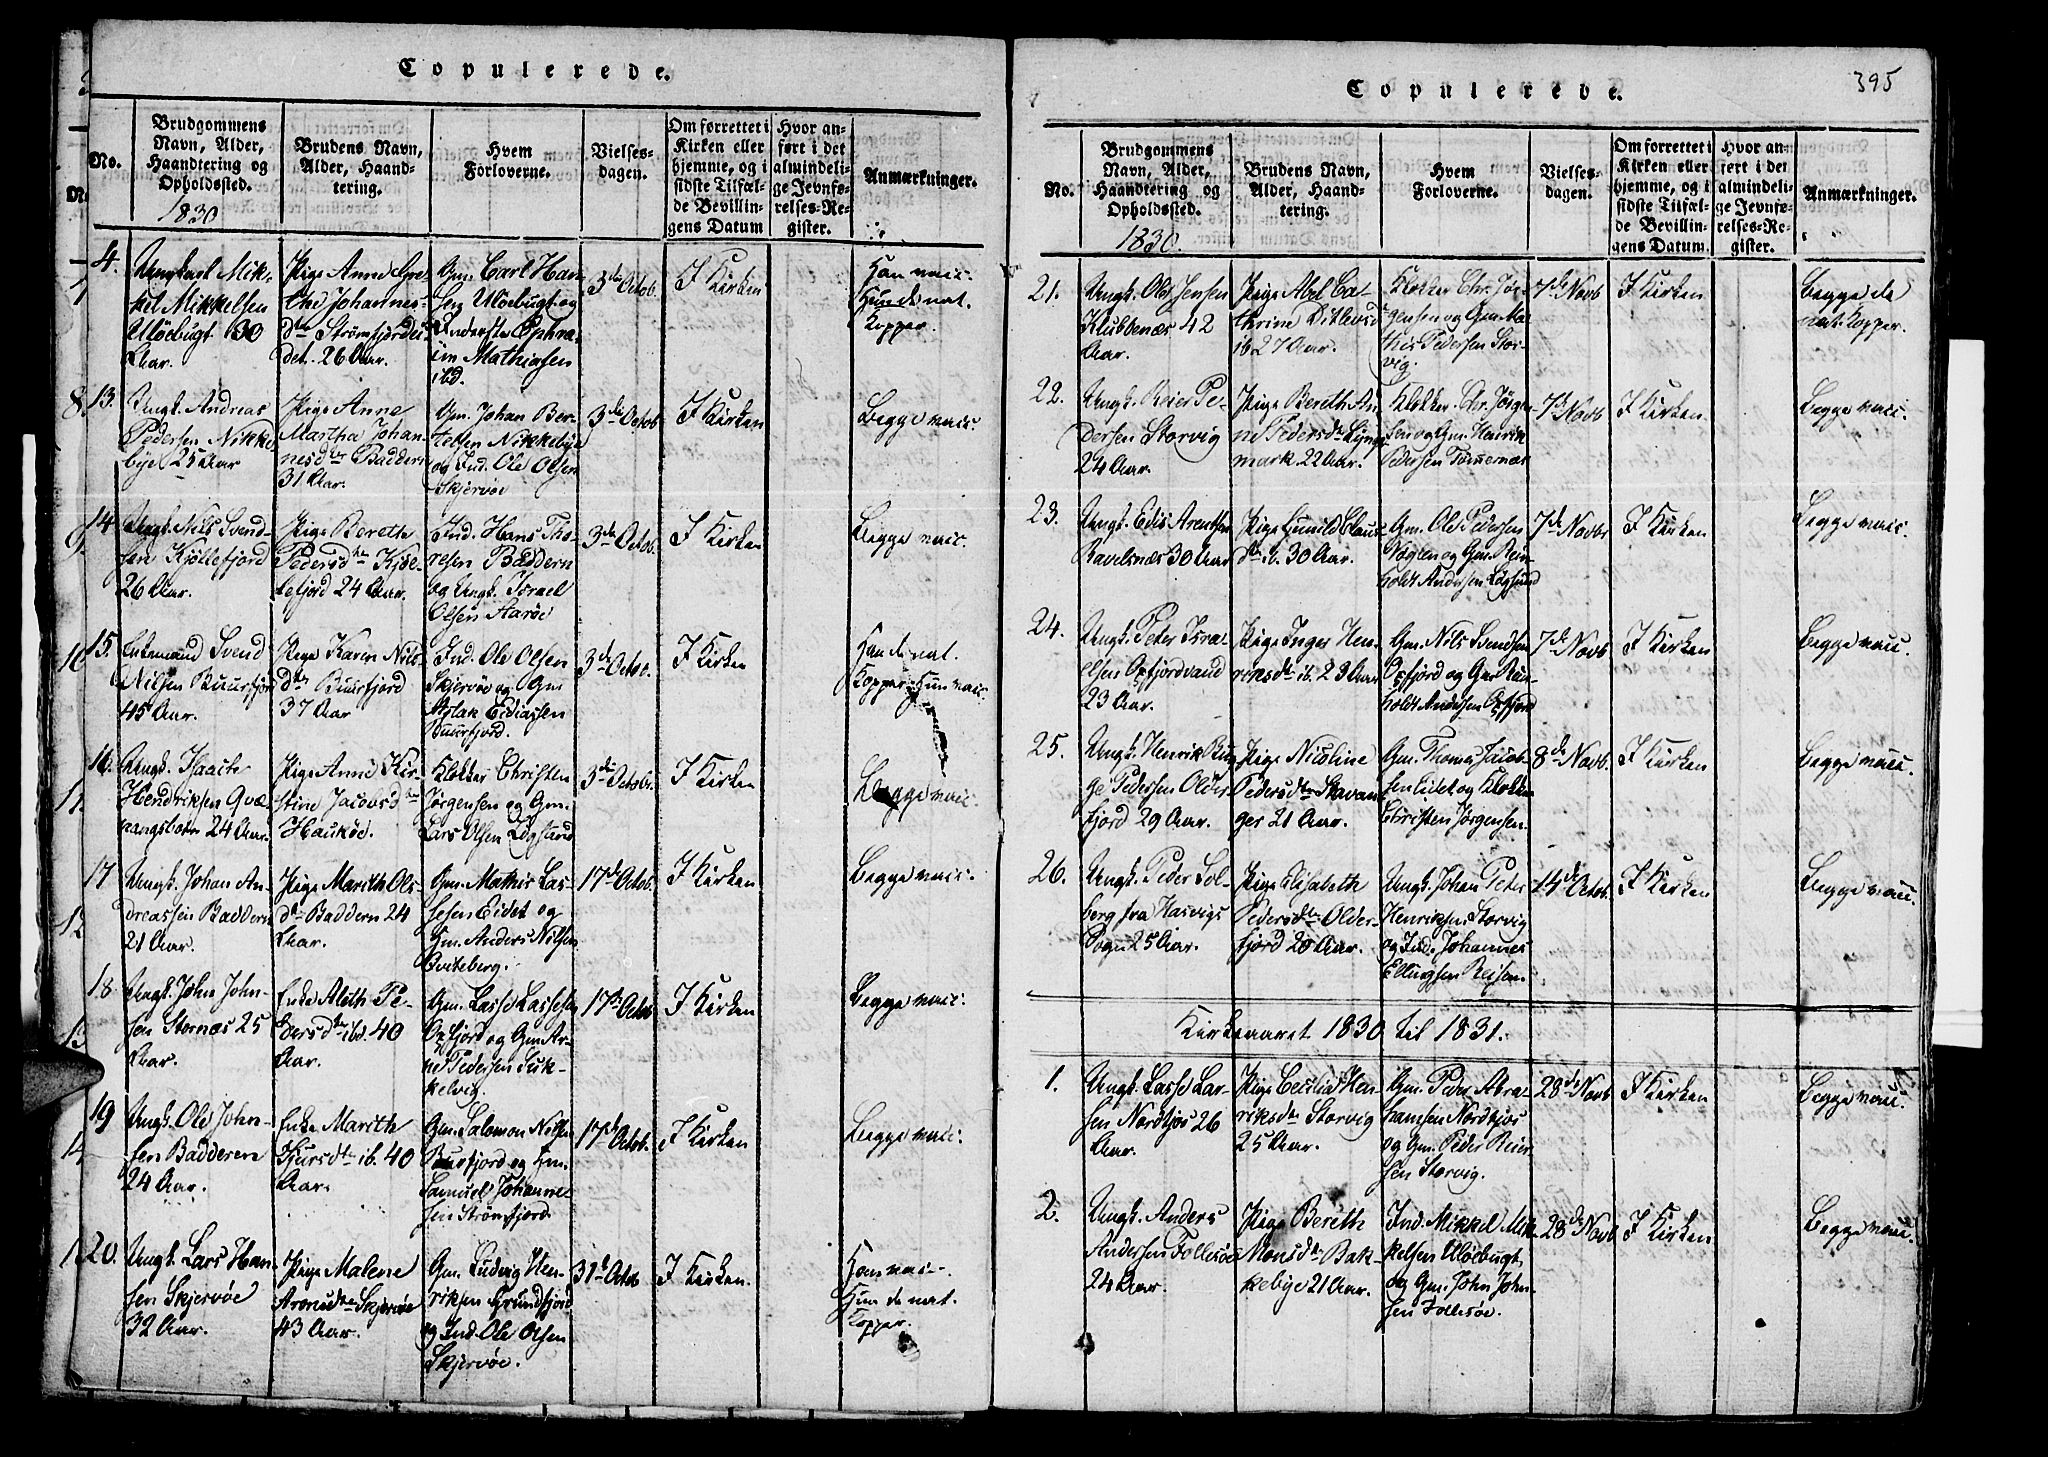 Copulerede.
No.
Brudgommens
Navn, Alder,
Haandtering og
Opholdssted.
1830
Brudens Navn,
Alder, Haand-
tering.
Hvem
Forloverne.
Vielses-
dagen.
Om forrettet i
Kirken eller
hjemme, og i
sidste Tilfæl-
de Bevillin-
gens Datum
Hvor an-
ført i det
almindeli-
ge Jevnfø-
relses-Re-
gister.
Anmærkninger.
Mik-
kel Mikkelsen
Uløebugt 30
Aar.
Pige Anne Gre-
the Johannes-
dtr Strømfjordei-
det. 26 Aar.
Gm. Carl Han-
sen Uløebugt og
Inderste Ephra-
im Mathiasen
ibd.
3de Octob.
I Kirken
Han vacc.
Hun de nat.
Kopper.
13.
Ungk. Andreas
Pedersen Nikke-
bye 25 Aar
Pige Anne
Martha Johan-
nesdtr Baddern
31 Aar.
Gm. Johan Ber-
telsen Nikkebye
og Ind. Ole Olsen
Skjervøe
3de Octob
I Kirken
Begge vacc.
14.
Ungk. Nils Svend-
sen Kjöllefjord
26 Aar.
Pige Bereth
Pedersdtr Kjöl-
lefjord 24 Aar.
Ind. Hans Tho-
resen Baddern
og Ungk. Israel
Olsen Aarøe
3de Octob.
I Kirken
Begge vacc.
15.
Enkemand Svend
Nilsen Buurfjord
45 Aar.
Pige Karen Nils-
dtr Buurfjord
37 Aar
Ind. Ole Olsen
Skjervøe og Gm
Aslak Ediassen
Buurfjord.
3de Octob.
I Kirken
Han de nat.
Kopper Hun vacc.
16.
Ungk. Isaach
Hendriksen Qvæ-
nangsbotn 24 Aar.
Pige Anne Kir-
stine Jacobsdtr
Haukøe.
Klokker Christen
Jørgensen og Gm.
Lars Olsen Løgsund
3de Octobr.
I Kirken
Begge vacc.
17
Ungk. Johan An-
dreassen Baddern
21 Aar.
Pige Marith Ols-
dtr Baddern 24
Aar.
Gm. Mathis Las-
sesen Eidet og
Gm. Anders Nilsen
Qviteberg.
17de Octob.
I Kirken
Begge vacc.
18.
Ungk. John John-
sen Stornæs 25
Aar.
Enke Aleth Pe-
dersdtr ibd. 40
Aar.
Gm. Lasse Lassesen
Oxfjord og Gm Ar-
ne Pedersen Suk-
kelvig.
17de Octob
I Kirken
Begge vacc.
19
Ungk. Ole John-
sen Badderen
24 Aar.
Enke Marith
ib. 40
Aar.
Gm. Salomon Nilsen
Buurfjord og Gm.
Samuel Johanne-
sen Strømfjord.
17de Octob.
I Kirken
Begge vacc.
20.
Ungk. Lars Han-
sen Skjervøe
32 Aar.
Pige Malene
Aronsdtr Skjervøe
43 Aar.
Gm. Ludvig Hen-
riksen Grundfjord
og Ind. Ole Olsen
Skjervøe.
31te Octob
I Kirken.
Han vacc.
Hun de nat.
Kopper.
Copulerede.
395
No.
Brudgommens
Navn, Alder,
Haandtering og
Opholdssted.
1830.
Brudens Navn,
Alder, Haand-
tering.
Hvem
Forloverne.
Vielses-
dagen.
Om forrettet i
Kirken eller
hjemme, og i
sidste Tilfæl-
de Bevillin-
gens Datum.
Hvor an-
ført i det
almindeli-
ge Jevnfø-
relses-Re-
gister.
Anmærkninger.
21.
Ungk. Ole Jensen
Klubbenæs 42
Aar.
Pige Abel Ca-
thrine Ditlevsd
ib 27 Aar.
Klokker Chr. Jør-
gensen og Gm. Ma-
this Pedersen Stor-
vig.
7de Novb
I Kirken
Begge de
nat. Kopper.
22.
Ungk. Reier Pe-
dersen Storvig
24 Aar.
Pige Bereth An-
ne Pedersdtr Lyng-
mark. 22 Aar.
Klokker Chr. Jörgen-
sen og Gm. Henrik
Pedersen
7de Novb
I Kirken
Begge vacc.
23.
Ungk. Edis Arentsen
Ravelsnæs 30 Aar
Pige Gunild Claus-
dtr ib. 30 Aar.
Gm. Ole Pedersen
Noglen og Gm. Rein-
holdt Andersen Løgsund
7de Novbr
I Kirken
Begge vacc.
24.
Ungk. Peter Isra-
elsen Oxfjordvand
23 Aar.
Pige Inger Hen-
riksdtr ib. 23 Aar
Gm. Nils Svendsen
Oxfjord og Gm. Rein-
holdt Andersen Oxfjord
7de Novb
I Kirken
Begge vacc.
25.
Ungk. Henrik
Pedersen Older-
fjord 29 Aar.
Pige Nicoline
Pedersdtr Stavan-
ger 21 Aar.
Gm. Thomas Jacob-
sen Eidet og Klokker
Christen Jørgensen.
8de Novb.
I Kirken
Begge vacc.
26.
Ungk. Peder Sol-
berg fra Hasvigs
Sogn 25 Aar.
Pige Elisabeth
Pedersdtr Older-
fjord 20 Aar.
Ungk. Johan Peter
Henriksen Storvig
og Ind. Johannes
Ellingsen Reisen.
14de Octob.
I Kirken
Begge vacc.
Kirkeaaret 1830 til 1831.
1.
Ungk. Lasse Lar-
sen Nordkjos 26
Aar.
Pige Cecilia Hen-
riksdtr Storvig
25 Aar.
Gm. Peder Abra-
hamsen Nordkjos
og Gm. Peder Reier-
sen Storvig.
28de Novb
I Kirken
Begge vacc.
2.
Ungk. Anders
Andersen Follesøe
24 Aar.
Pige Bereth
Monsdtr Bak-
kebye 21 Aar.
Ind. Mikkel Mik-
kelsen Uløebugt
og Gm. John John-
sen Follesøe.
28de Novb
I Kirken
Begge vacc.